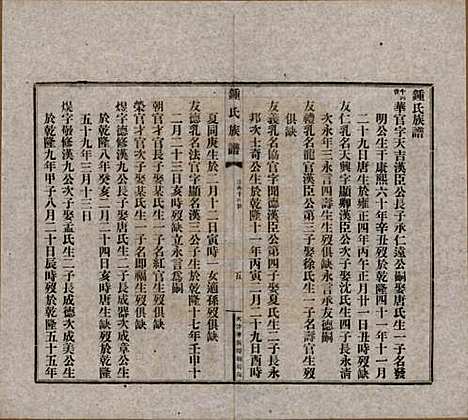 鍾氏族譜
華官字天吉漢臣公長子承仁遠公嗣娶唐氏生一子名發
明公生于康熙六十年辛丑歿於乾隆四十一年十一月
二十九日唐生於雍正四年丙午正月廿一日丑時歿缺
友仁乳名天興字顯卿漢臣公次子娶沈氏生四子長永清
次永年三永言四永吉生歿俱缺永言承友德嗣
友禮乳名龍官漢臣公第三子娶徐氏生一子名壽官生歿
俱缺
友義乳名協官字聞德漢臣公第四子娶夏氏生二子長興
邦次士奇公生於乾隆十一年丙寅二月二十九日酉時
鍾氏族譜
五
夏同庚生於二月十二日寅時一女適孫歿俱缺
友德乳名法官字顯名漢三公子生於乾隆十七年壬申十
二月二十三日亥時歿缺立永言為嗣
朝官才官長子娶某氏生一子名紅官生歿俱缺
榮官才官次子娶某氏生一子名即福生歿俱缺
煜字德修漢九公長子娶唐氏生二子長成器次成章公生
於乾隆八年癸亥二月二十四日亥時唐生缺歿於乾隆
五十九年三月十三日
焜字敬修漢九公次子娶孟氏生二子長成功次成美公生
於乾隆九年甲子八月二十日辰時歿於乾隆五十五年